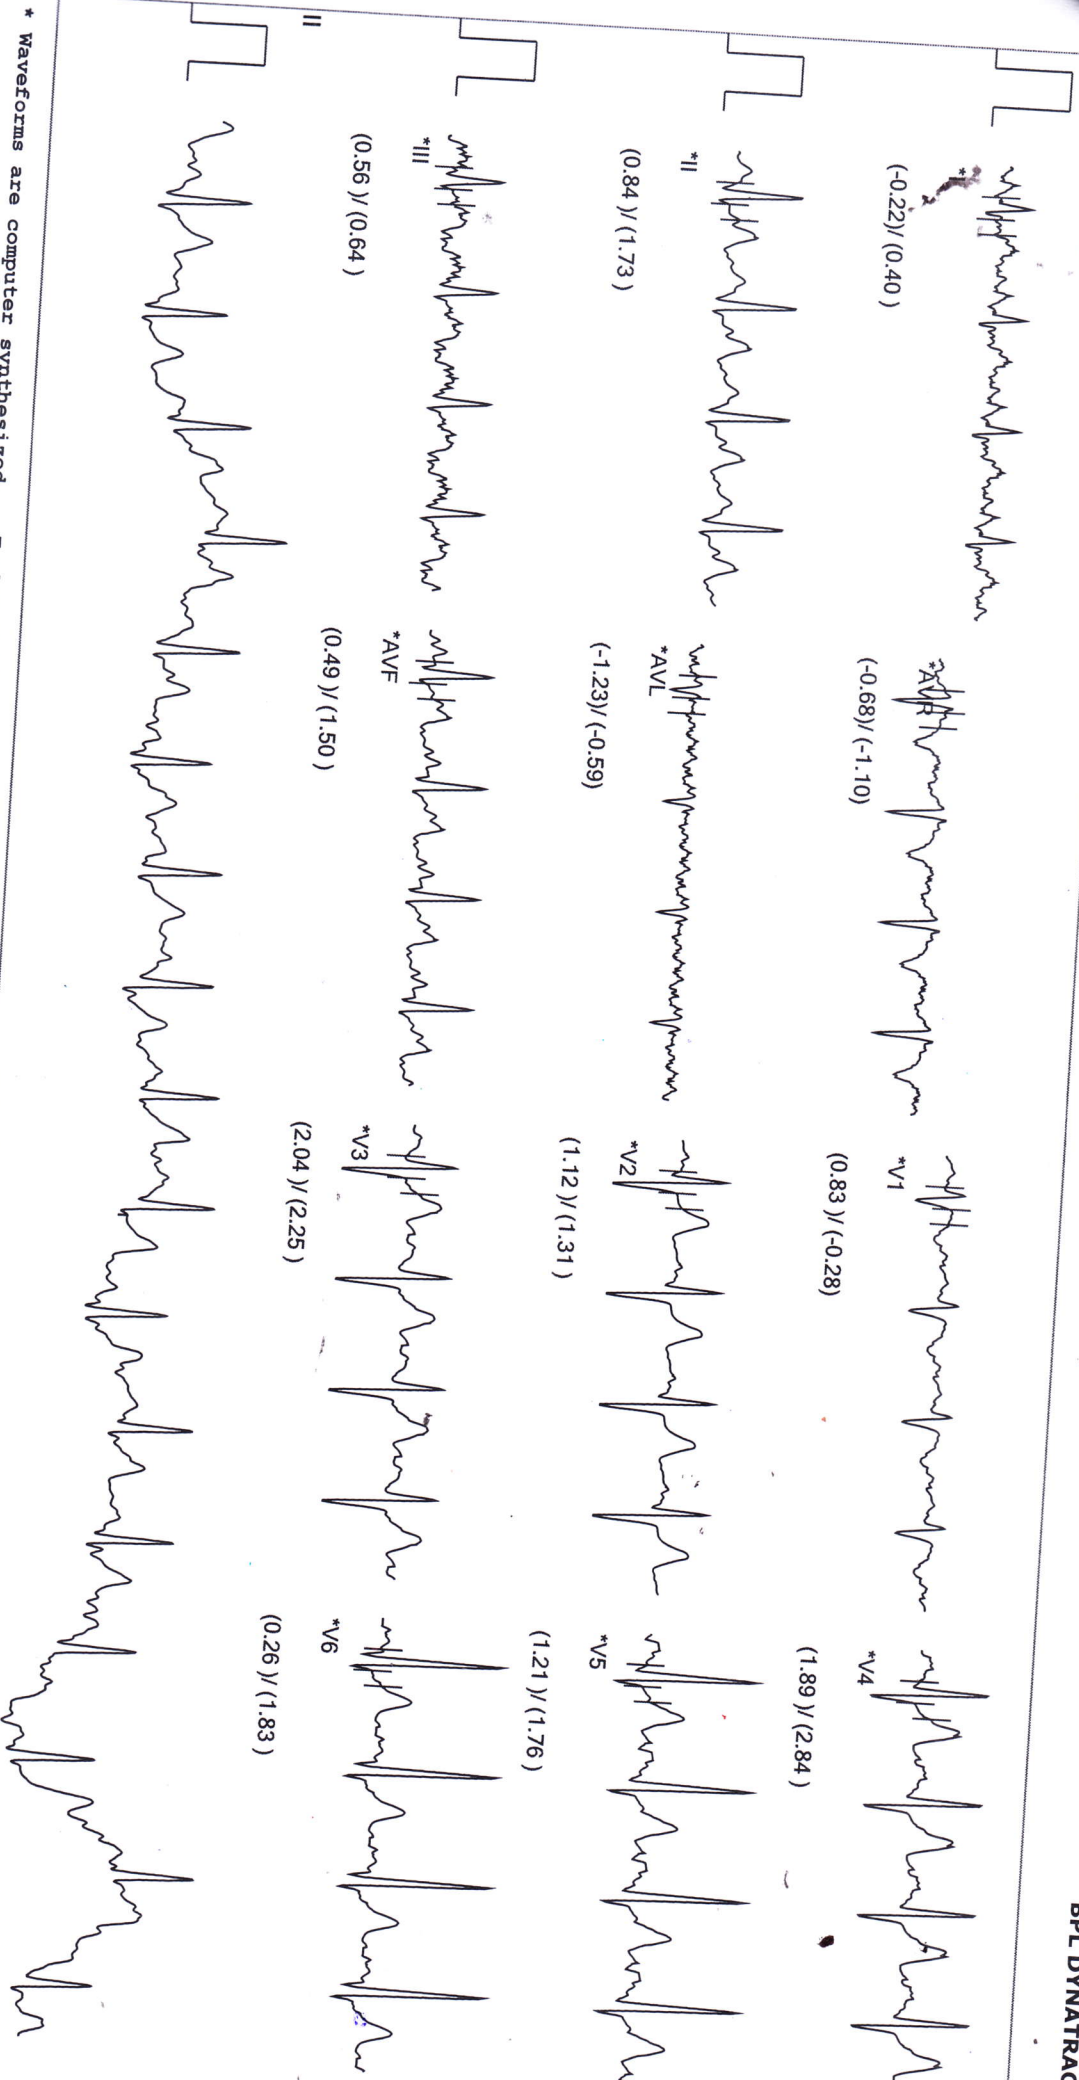 BPL DYNATRAC
*I
(-0.22)/ (0.40 )
*AVR
(-0.68)/ (-1.10)
*V1
(0.83 )/ (-0.28)
*V4
(1.89 )/ (2.84 )
*II
(0.84 )/ (1.73 )
*AVL
(-1.23)/ (-0.59)
*V2
(1.12 )/ (1.31 )
*V5
(1.21 )/ (1.76 )
*III
(0.56 )/ (0.64 )
*AVF
(0.49 )/ (1.50 )
*V3
(2.04 )/ (2.25 )
*V6
(0.26 )/ (1.83 )
II
* Waveforms are computer synthesized